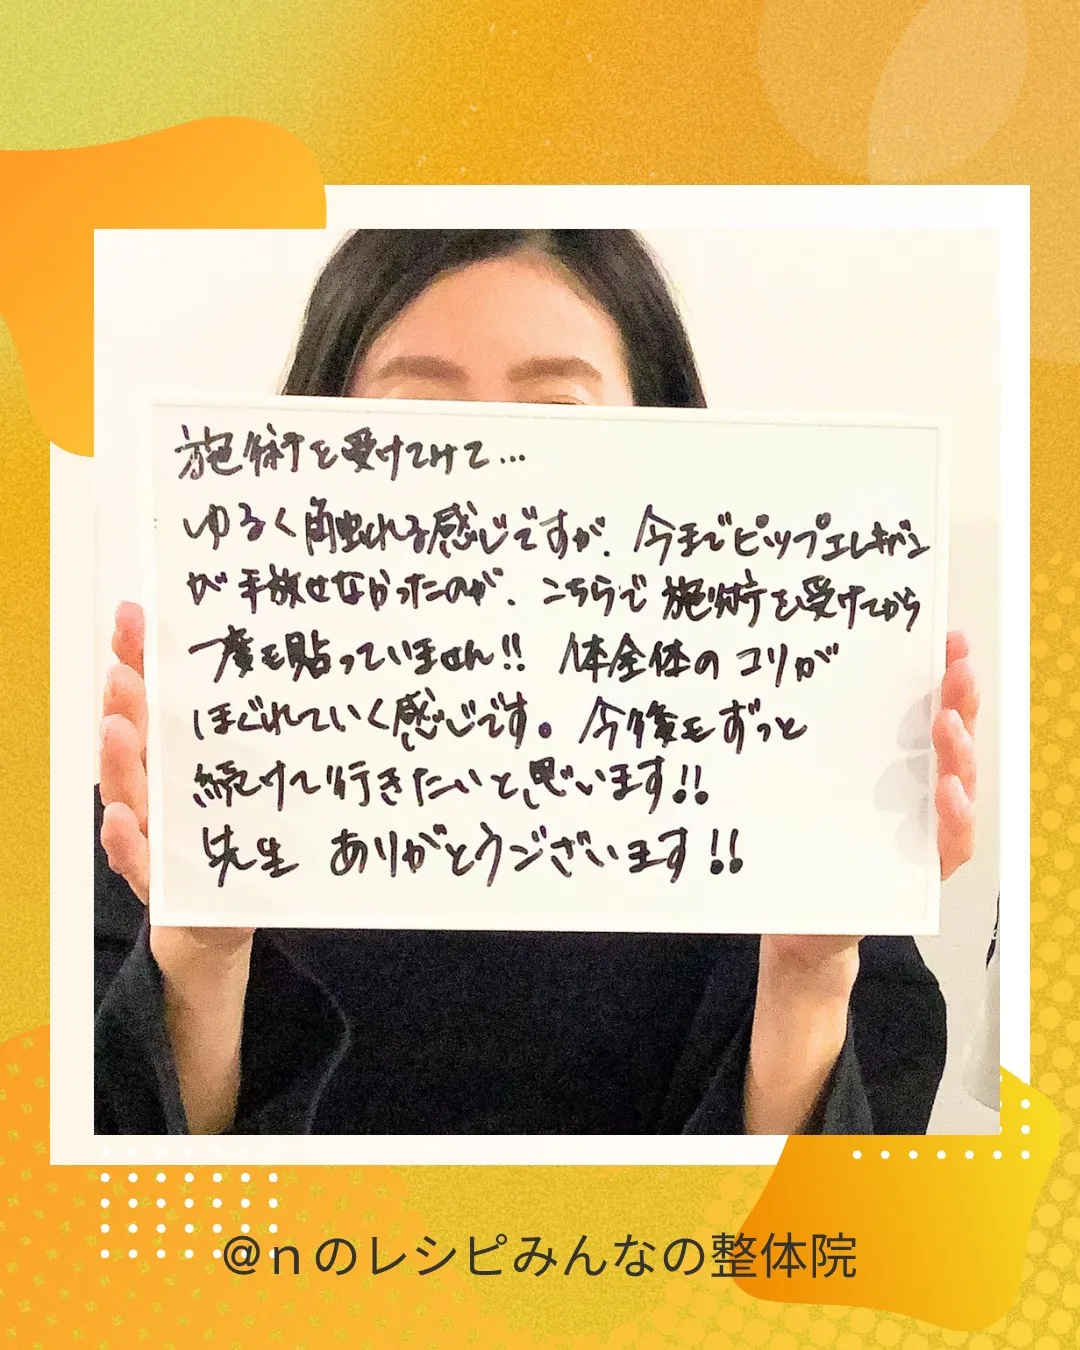 施術を受けてみて…
ゆるく触れる感じですが、今までピップエレキバン
が手放せなかったのが、こちらで施術を受けてから
一度も貼っていません!! 体全体のコリが
ほぐれていく感じです。今後もずっと
続けて行きたいと思います!!
先生 ありがとうございます!!
@nのレシピみんなの整体院